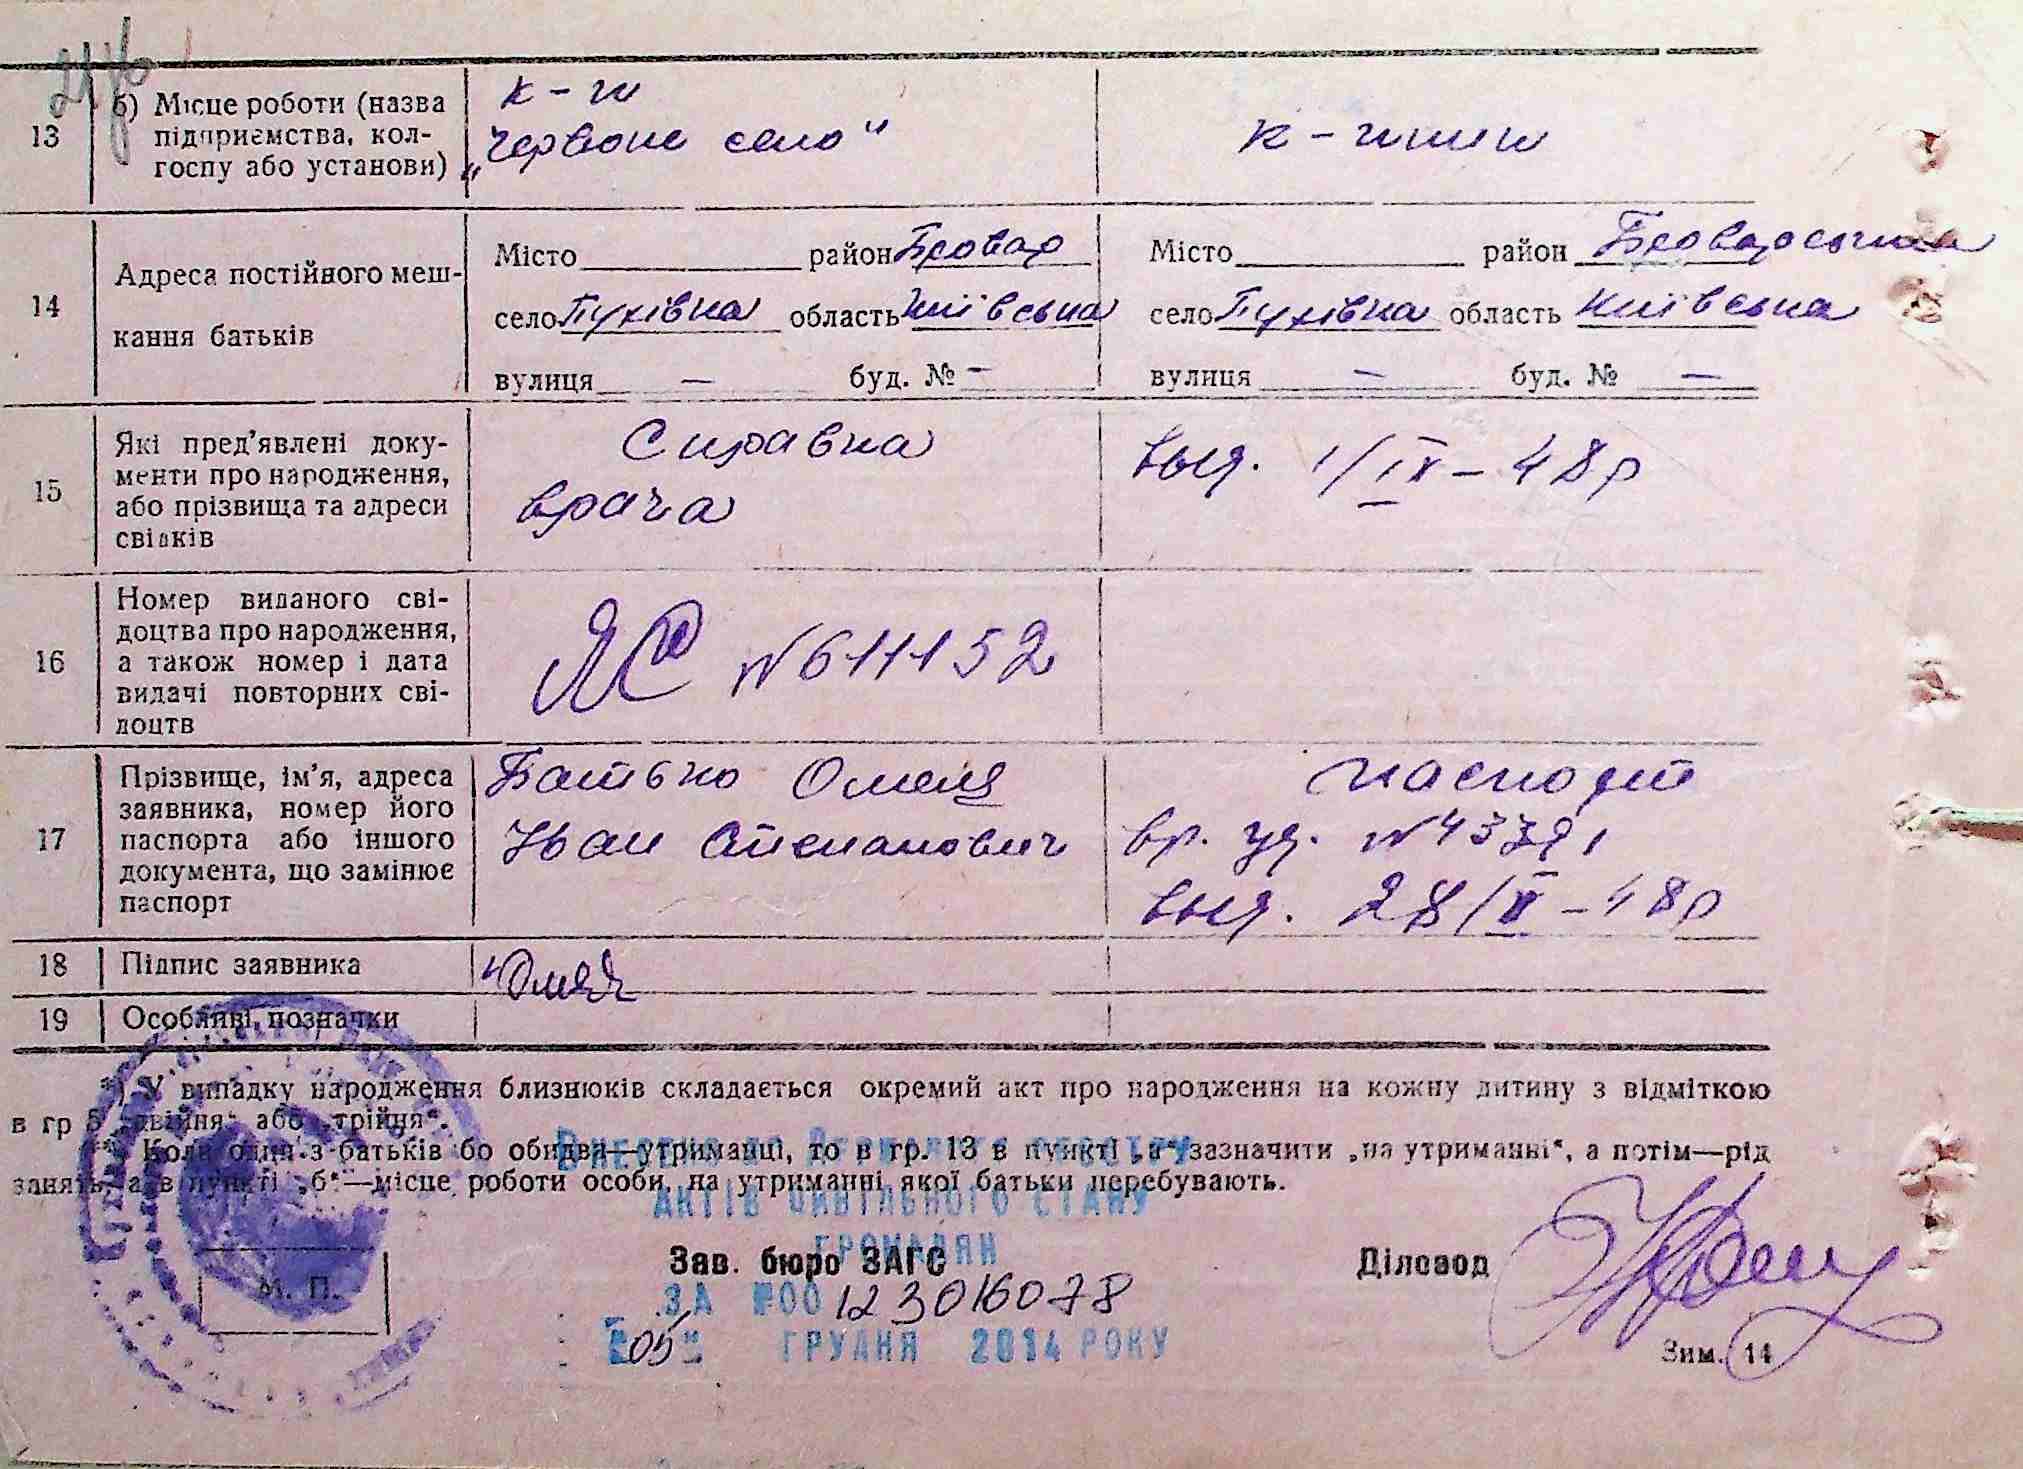 13 б) Місце роботи (назва підприємства, кол-госпу або установи)
к-п
„Червоне село"
14 Адреса постійного меш-
кання батьків
Місто район Бровар
село Пухівка область Київська
вулиця — буд. № —
Місто район Броварський
село Пухівка область Київська
вулиця — буд. № —
15 Які пред'явлені доку-
менти про народження,
або прізвища та адреси
свідків
Справка
врача
выд. 1/IX-48р
16 Номер виданого сві-
доцтва про народження,
а також номер і дата
видачі повторних сві-
доцтв
ЯС №611152
17 Прізвище, ім'я, адреса
заявника, номер його
паспорта або іншого
документа, що замінює
паспорт
Батько Омеля
Іван Степанович
паспорт
вр. уд.
выд.
18 Підпис заявника
19 Особливі позначки
*) У випадку народження близнюків складається окремий акт про народження на кожну дитину з відміткою
в гр 5 „двійня" або „трійня".
**) Коли один з батьків бо обидва—утриманці, то в гр. 13 в пункті „а" зазначити „на утриманні", а потім—рід
занять, а в пункті „б"—місце роботи особи, на утриманні якої батьки перебувають.
Внесено до Державного реєстру
актів цивільного стану
громадян
М. П.
Зав. бюро ЗАГС
Діловод
за №00 123016078
"05" грудня 2014 року
Зим. 14